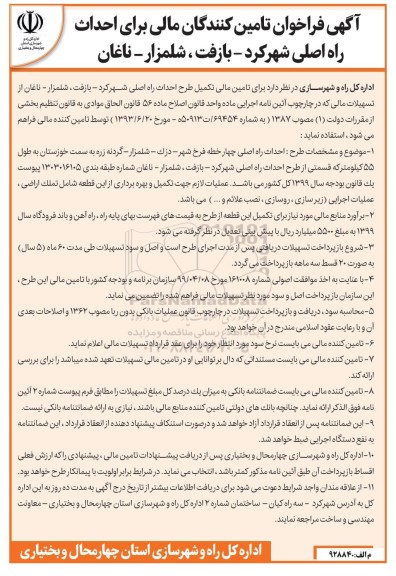 آگهی فراخوان تامین کنندگان مالی برای احداث
راه اصلی شهرکرد - بازفت ، شلمزار - ناغان
اداره کل راه و شهرسازی
استان چهارمحال و بختیاری
اداره کل راه و شهرسازی در نظر دارد برای تامین مالی تکمیل طرح احداث راه اصلی شهرکرد - بازفت ، شلمزار - ناغان از
تسهیلات مالی که در چارچوب آئین نامه اجرایی ماده واحد قانون اصلاح ماده ۵۶ قانون الحاق موادی به قانون تنظیم بخشی
از مقررات دولت (۱) مصوب ۱۳۸۷ ( به شماره ۶۹۴۵۴/ت۵۰۹۱۳ه - مورخ ۱۳۹۳/۶/۲۰ ) توسط تامین کننده مالی فراهم
می شود ، استفاده نماید :
۱-موضوع و مشخصات طرح : احداث راه اصلی چهار خطه فرخ شهر - دزک - شلمزار - گردنه زره به سمت خوزستان به طول
۵۵ کیلومتر که قسمتی از طرح احداث راه اصلی شهرکرد - بازفت ، شلمزار - ناغان شماره طبقه بندی ۱۳۰۳۰۱۶۱۰۵ پیوست
یک قانون بودجه سال ۱۳۹۹ کل کشور می باشد. عملیات لازم جهت تکمیل و بهره برداری از این قطعه شامل تملک اراضی ،
عملیات اجرایی (زیر سازی ، روسازی ، نصب علائم و ... ) می باشد.
۲-برآورد منابع مالی مورد نیاز برای تکمیل این قطعه از طرح به قیمت های فهرست بهای پایه راه ، راه آهن و باند فرودگاه سال
۱۳۹۹ به مبلغ ۵۵۰۰ میلیارد ریال با پیش بینی تعدیل در نظر گرفته می شود.
۳-شروع بازپرداخت تسهیلات دریافتی پس از مدت اجرای طرح است و اصل و سود تسهیلات طی مدت ۶۰ ماه (۵ سال)
به صورت ۲۰ قسط سه ماهه بازپرداخت می گردد.
۴-با عنایت به اخذ موافقت اصولی شماره ۱۶۱۰۰۸ مورخ ۹۹/۰۴/۰۸ سازمان برنامه و بودجه کشور با تامین مالی این طرح ،
این سازمان بازپرداخت اصل و سود مورد نظر تسهیلات مالی فراهم شده را تضمین می نماید.
۵-محاسبه سود ، دریافت و بازپرداخت تسهیلات در چارچوب قانون عملیات بانکی بدون ربا مصوب ۱۳۶۲ و اصلاحات بعدی
آن و با رعایت عقود اسلامی مندرج در آن خواهد بود.
۶- تامین کننده مالی می بایست نرخ سود مورد انتظار خود را برای عقد قرارداد تسهیلات مالی اعلام نماید.
۷- تامین کننده مالی می بایست مستنداتی که دال بر توانایی او در تامین مالی تسهیلات تعهد شده میباشد را برای بررسی
ارائه کند.
۸- تامین کننده مالی می بایست ضمانتنامه بانکی به میزان یک درصد کل مبلغ تسهیلات را مطابق فرم پیوست شماره ۲ آئین
نامه فوق الذکر ارائه نماید. چنانچه بانک های دولتی تامین کننده منابع مالی باشند ، نیازی به ارائه ضمانتنامه بانکی نیست.
۹- این ضمانتنامه پس از انعقاد قرارداد آزاد خواهد شد و درصورت استنکاف پیشنهاد دهنده از انعقاد قرارداد ، این ضمانتنامه
به نفع دستگاه اجرایی ضبط خواهد شد.
۱۰-اداره کل راه و شهرسازی چهارمحال و بختیاری پس از دریافت پیشنهادات تامین مالی ، پیشنهادی را که ارزش فعلی
اقساط بازپرداخت آن طبق آئین نامه مذکور کمتر باشد ، انتخاب می نماید. در شرایط برابر اولویت با پیمانکار طرح خواهد بود.
۱۱- از علاقه مندان واجد شرایط دعوت می شود برای دریافت اطلاعات بیشتر از تاریخ درج آگهی به مدت ده روز به این اداره
کل به آدرس شهرکرد - سه راه کیان - ساختمان شماره ۲ اداره کل راه و شهرسازی استان چهارمحال و بختیاری - معاونت
مهندسی و ساخت مراجعه نمایند.
م الف: ۹۲۸۸۴۰
اداره کل راه و شهرسازی استان چهارمحال و بختیاری